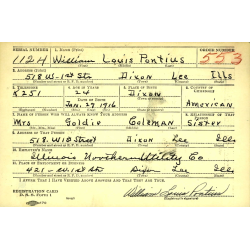 SERIAL NUMBER 1. NAME (Print) ORDER NUMBER
1124 William Louis Pontius 553
2. ADDRESS (Print)
518 W-1st Str Dixon Lee Ills
3. TELEPHONE 4. AGE IN YEARS 5. PLACE OF BIRTH 6. COUNTRY OF CITIZENSHIP
K251 24 Dixon
DATE OF BIRTH
Jan. 27 1916 American
7. NAME OF PERSON WHO WILL ALWAYS KNOW YOUR ADDRESS 8. RELATIONSHIP OF THAT PERSON
Mrs Goldie Coleman Sister
9. ADDRESS OF THAT PERSON
518 W 1st Street Dixon Lee Ills
10. EMPLOYER'S NAME
Illinois Northern Utility Co
11. PLACE OF EMPLOYMENT OR BUSINESS
421 - W 1st St Dixon Lee Ills
I AFFIRM THAT I HAVE VERIFIED ABOVE ANSWERS AND THAT THEY ARE TRUE.
REGISTRATION CARD
D. S. S. Form 1
William Louis Pontius